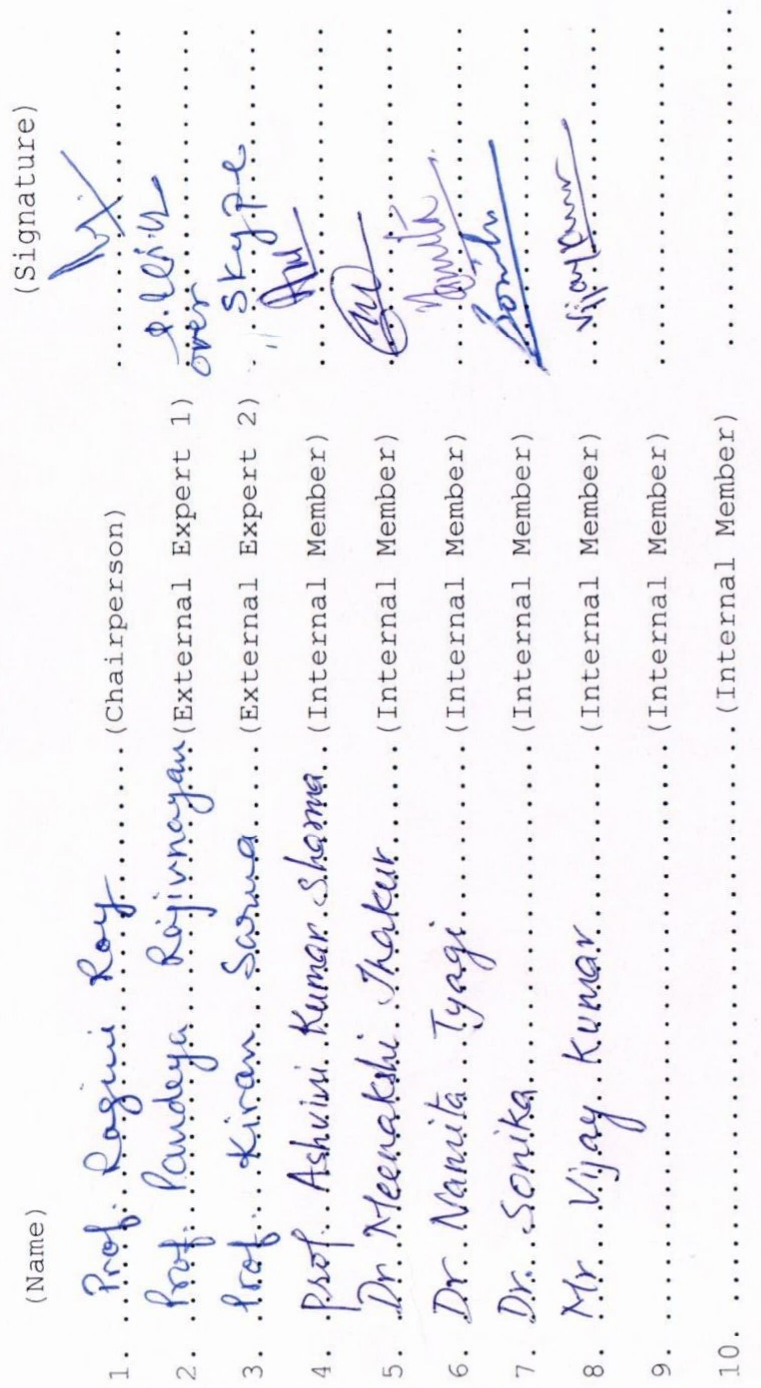 (Name) (Signature)
1. Prof. Ragini Roy (Chairperson)
2. Prof. Pandeya Rajivnayan (External Expert 1) over
3. Prof. Kiran Sarma (External Expert 2) " Skype
4. Prof. Ashvini Kumar Sharma (Internal Member)
5. Dr Meenakshi Thakur (Internal Member)
6. Dr Namita Tyagi (Internal Member) Namita
7. Dr. Sonika (Internal Member) Sonika
8. Mr Vijay Kumar (Internal Member) Vijay Kumar
9. (Internal Member)
10. (Internal Member)